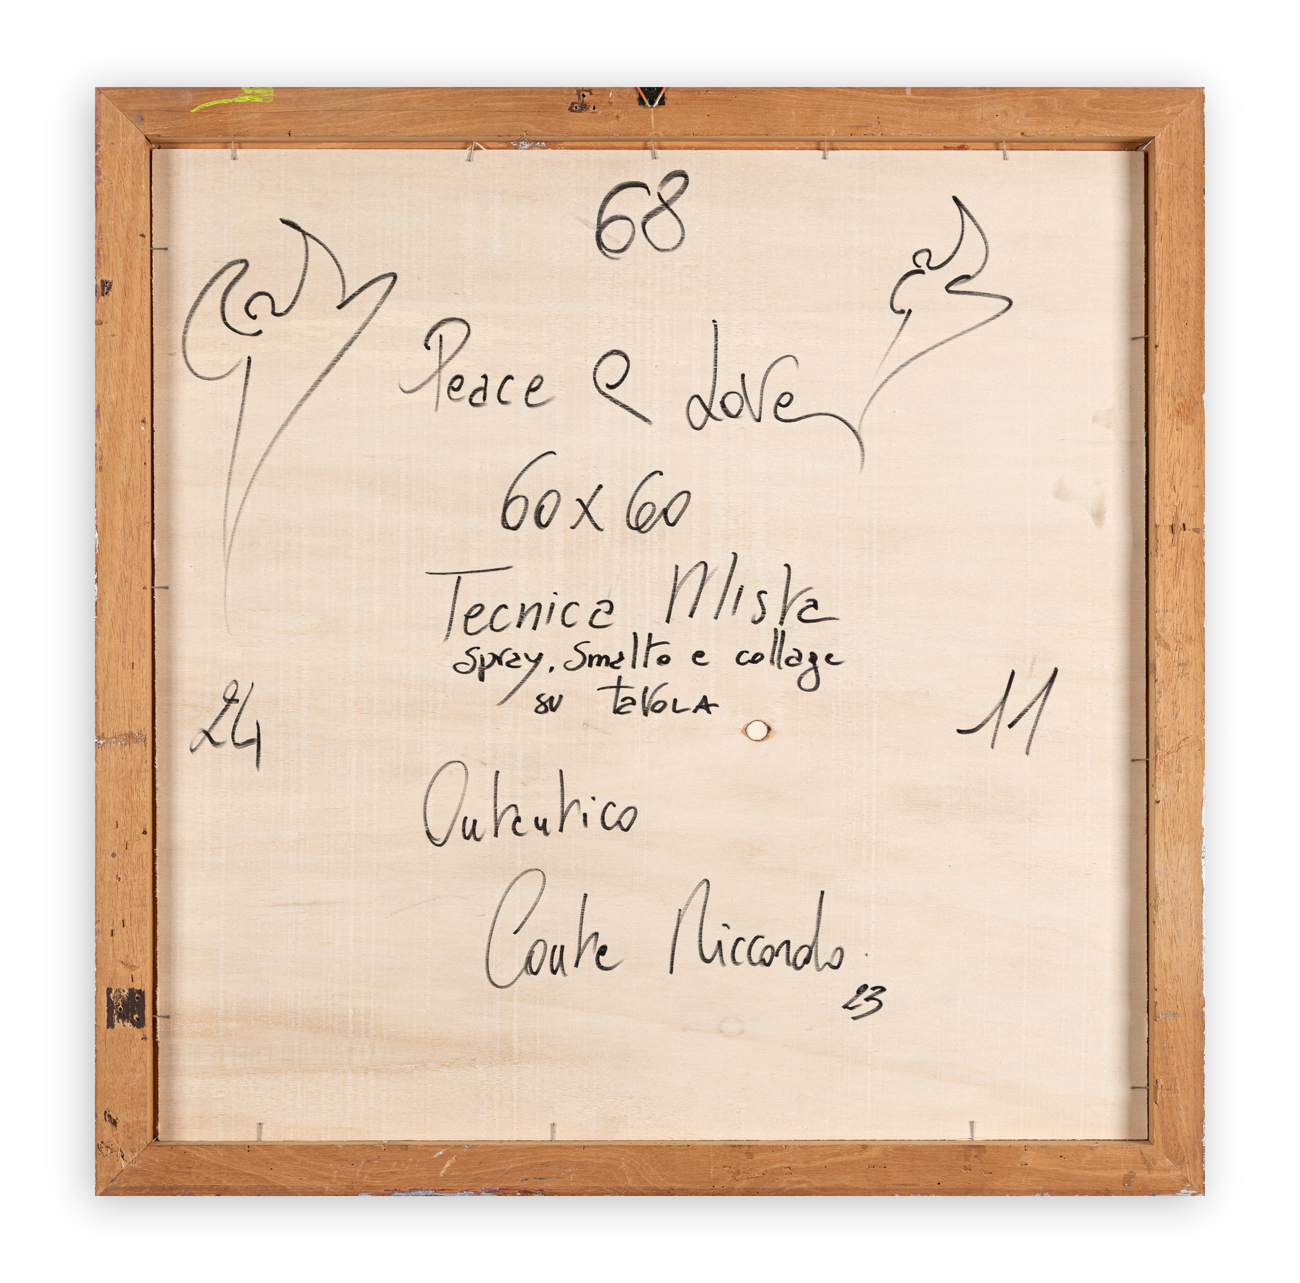 68
Peace e Love
60x60
Tecnica Mista
spray, smalto e collage
su tavola
24
11
Autentico
Conte Riccardo
23